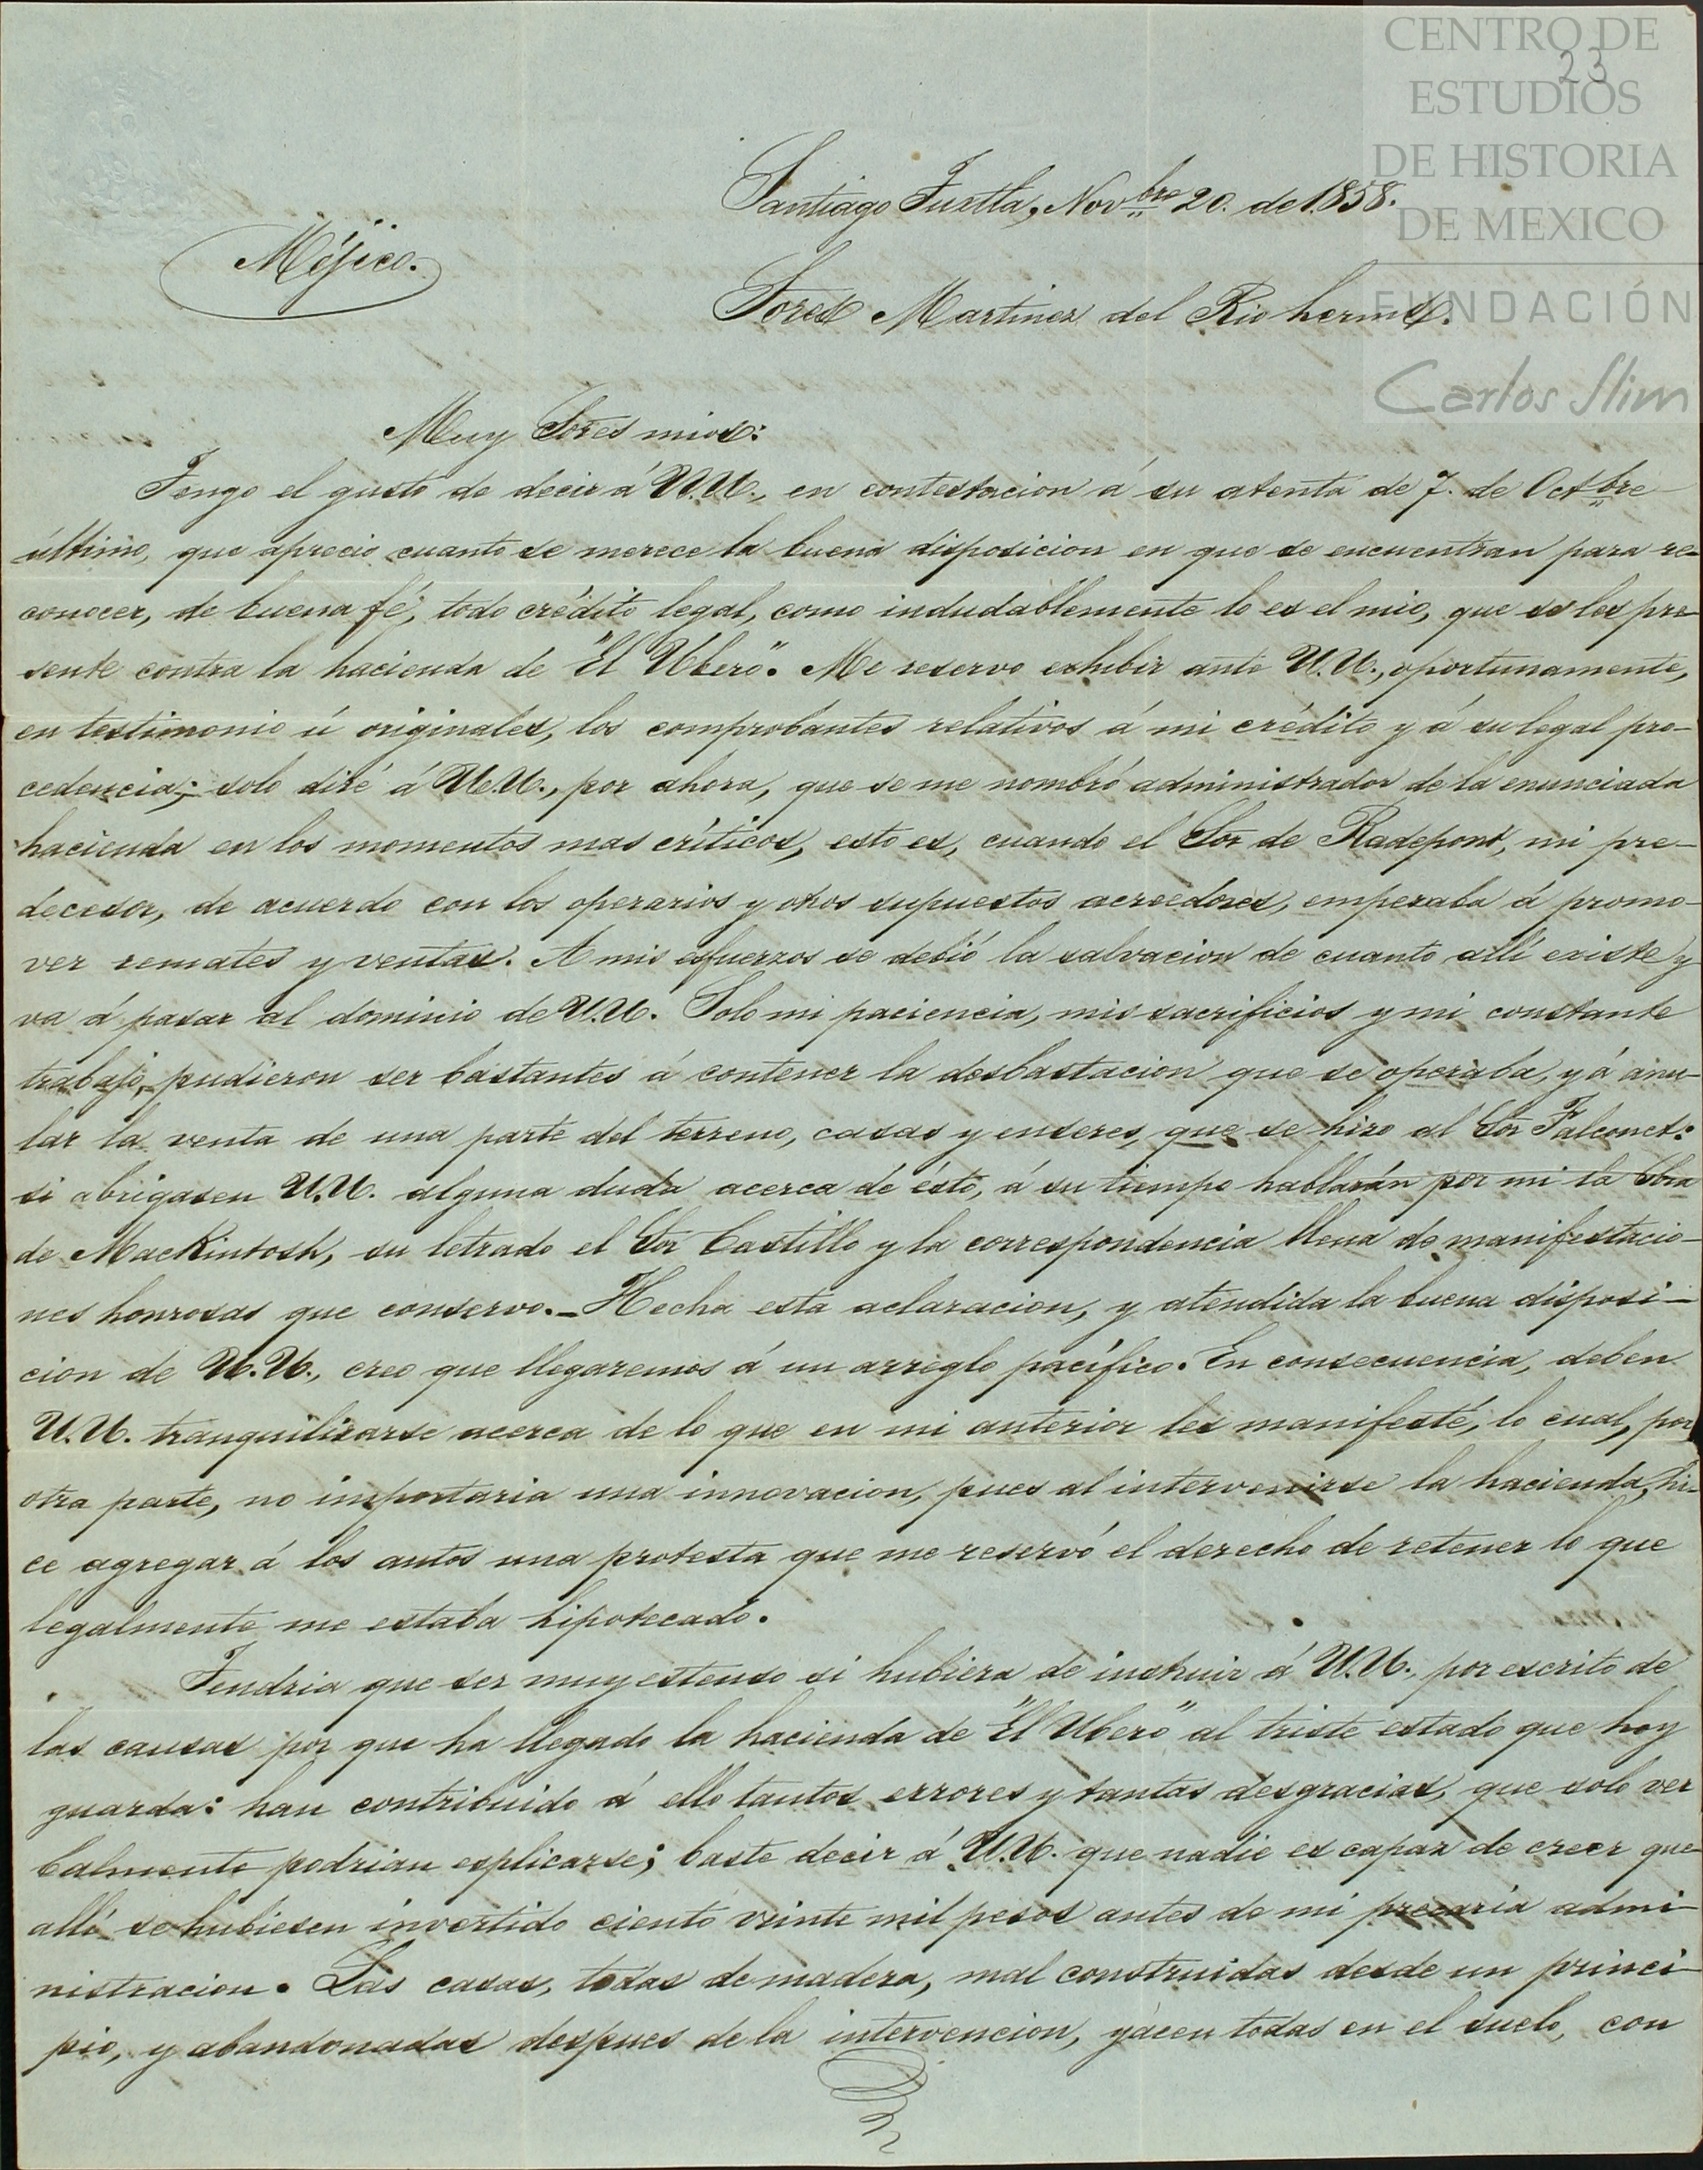 CENTRO DE
23
ESTUDIOS
DE HISTORIA
DE MEXICO
FUNDACIÓN
Carlos Slim
Santiago Tuxtla, Novbre 20. de 1858.
Méjico.
Sores Martinez del Rio herms.
Muy Sores mios:
Tengo el gusto de decir á U.U., en contestacion á su atenta de 7. de Octbre
último, que aprecio cuanto se merece la buena disposicion en que se encuentran para re-
conocer, de buena fé, todo crédito legal, como indudablemente lo es el mio, que se les pre-
sente contra la hacienda de "El Ubero". Me reservo exhibir ante U.U., oportunamente,
en testimonio ú originales, los comprobantes relativos á mi crédito y á su legal pro-
cedencia; solo diré á U.U., por ahora, que se me nombró administrador de la enunciada
hacienda en los momentos mas críticos, esto es, cuando el Sor de Radepont, mi pre-
decesor, de acuerdo con los operarios y otros supuestos acreedores, empezaba á promo-
ver remates y ventas. A mis esfuerzos se debió la salvacion de cuanto allí existe y
va á pasar al dominio de U.U. Solo mi paciencia, mis sacrificios y mi constante
trabajo, pudieron ser bastantes á contener la desbastacion que se operaba, y á anu-
lar la venta de una parte del terreno, casas y enseres, que se hizo al Sor Falconet:
si abrigasen U.U. alguna duda acerca de ésto, á su tiempo hablarán por mi la Sora
de MacKintosh, su letrado el Sor Castillo y la correspondencia llena de manifestacio-
nes honrosas que conservo._ Hecha esta aclaracion, y atendida la buena disposi-
cion de U.U., creo que llegaremos á un arreglo pacífico. En consecuencia, deben
U.U. tranquilizarse acerca de lo que en mi anterior les manifesté, lo cual, por
otra parte, no importaria una innovacion, pues al intervenirse la hacienda, hi-
ce agregar á los autos una protesta que me reservó el derecho de retener lo que
legalmente me estaba hipotecado.
Tendria que ser muy estenso si hubiera de instruir á U.U. por escrito de
las causas por que ha llegado la hacienda de "El Ubero" al triste estado que hoy
guarda: han contribuido á ello tantos errores y tantas desgracias, que solo ver
balmente podrian esplicarse; baste decir á U.U. que nadie es capaz de creer que
allí se hubiesen invertido ciento veinte mil pesos antes de mi precaria admi-
nistracion. Las casas, todas de madera, mal construidas desde un princi-
pio, y abandonadas despues de la intervencion, yácen todas en el suelo, con